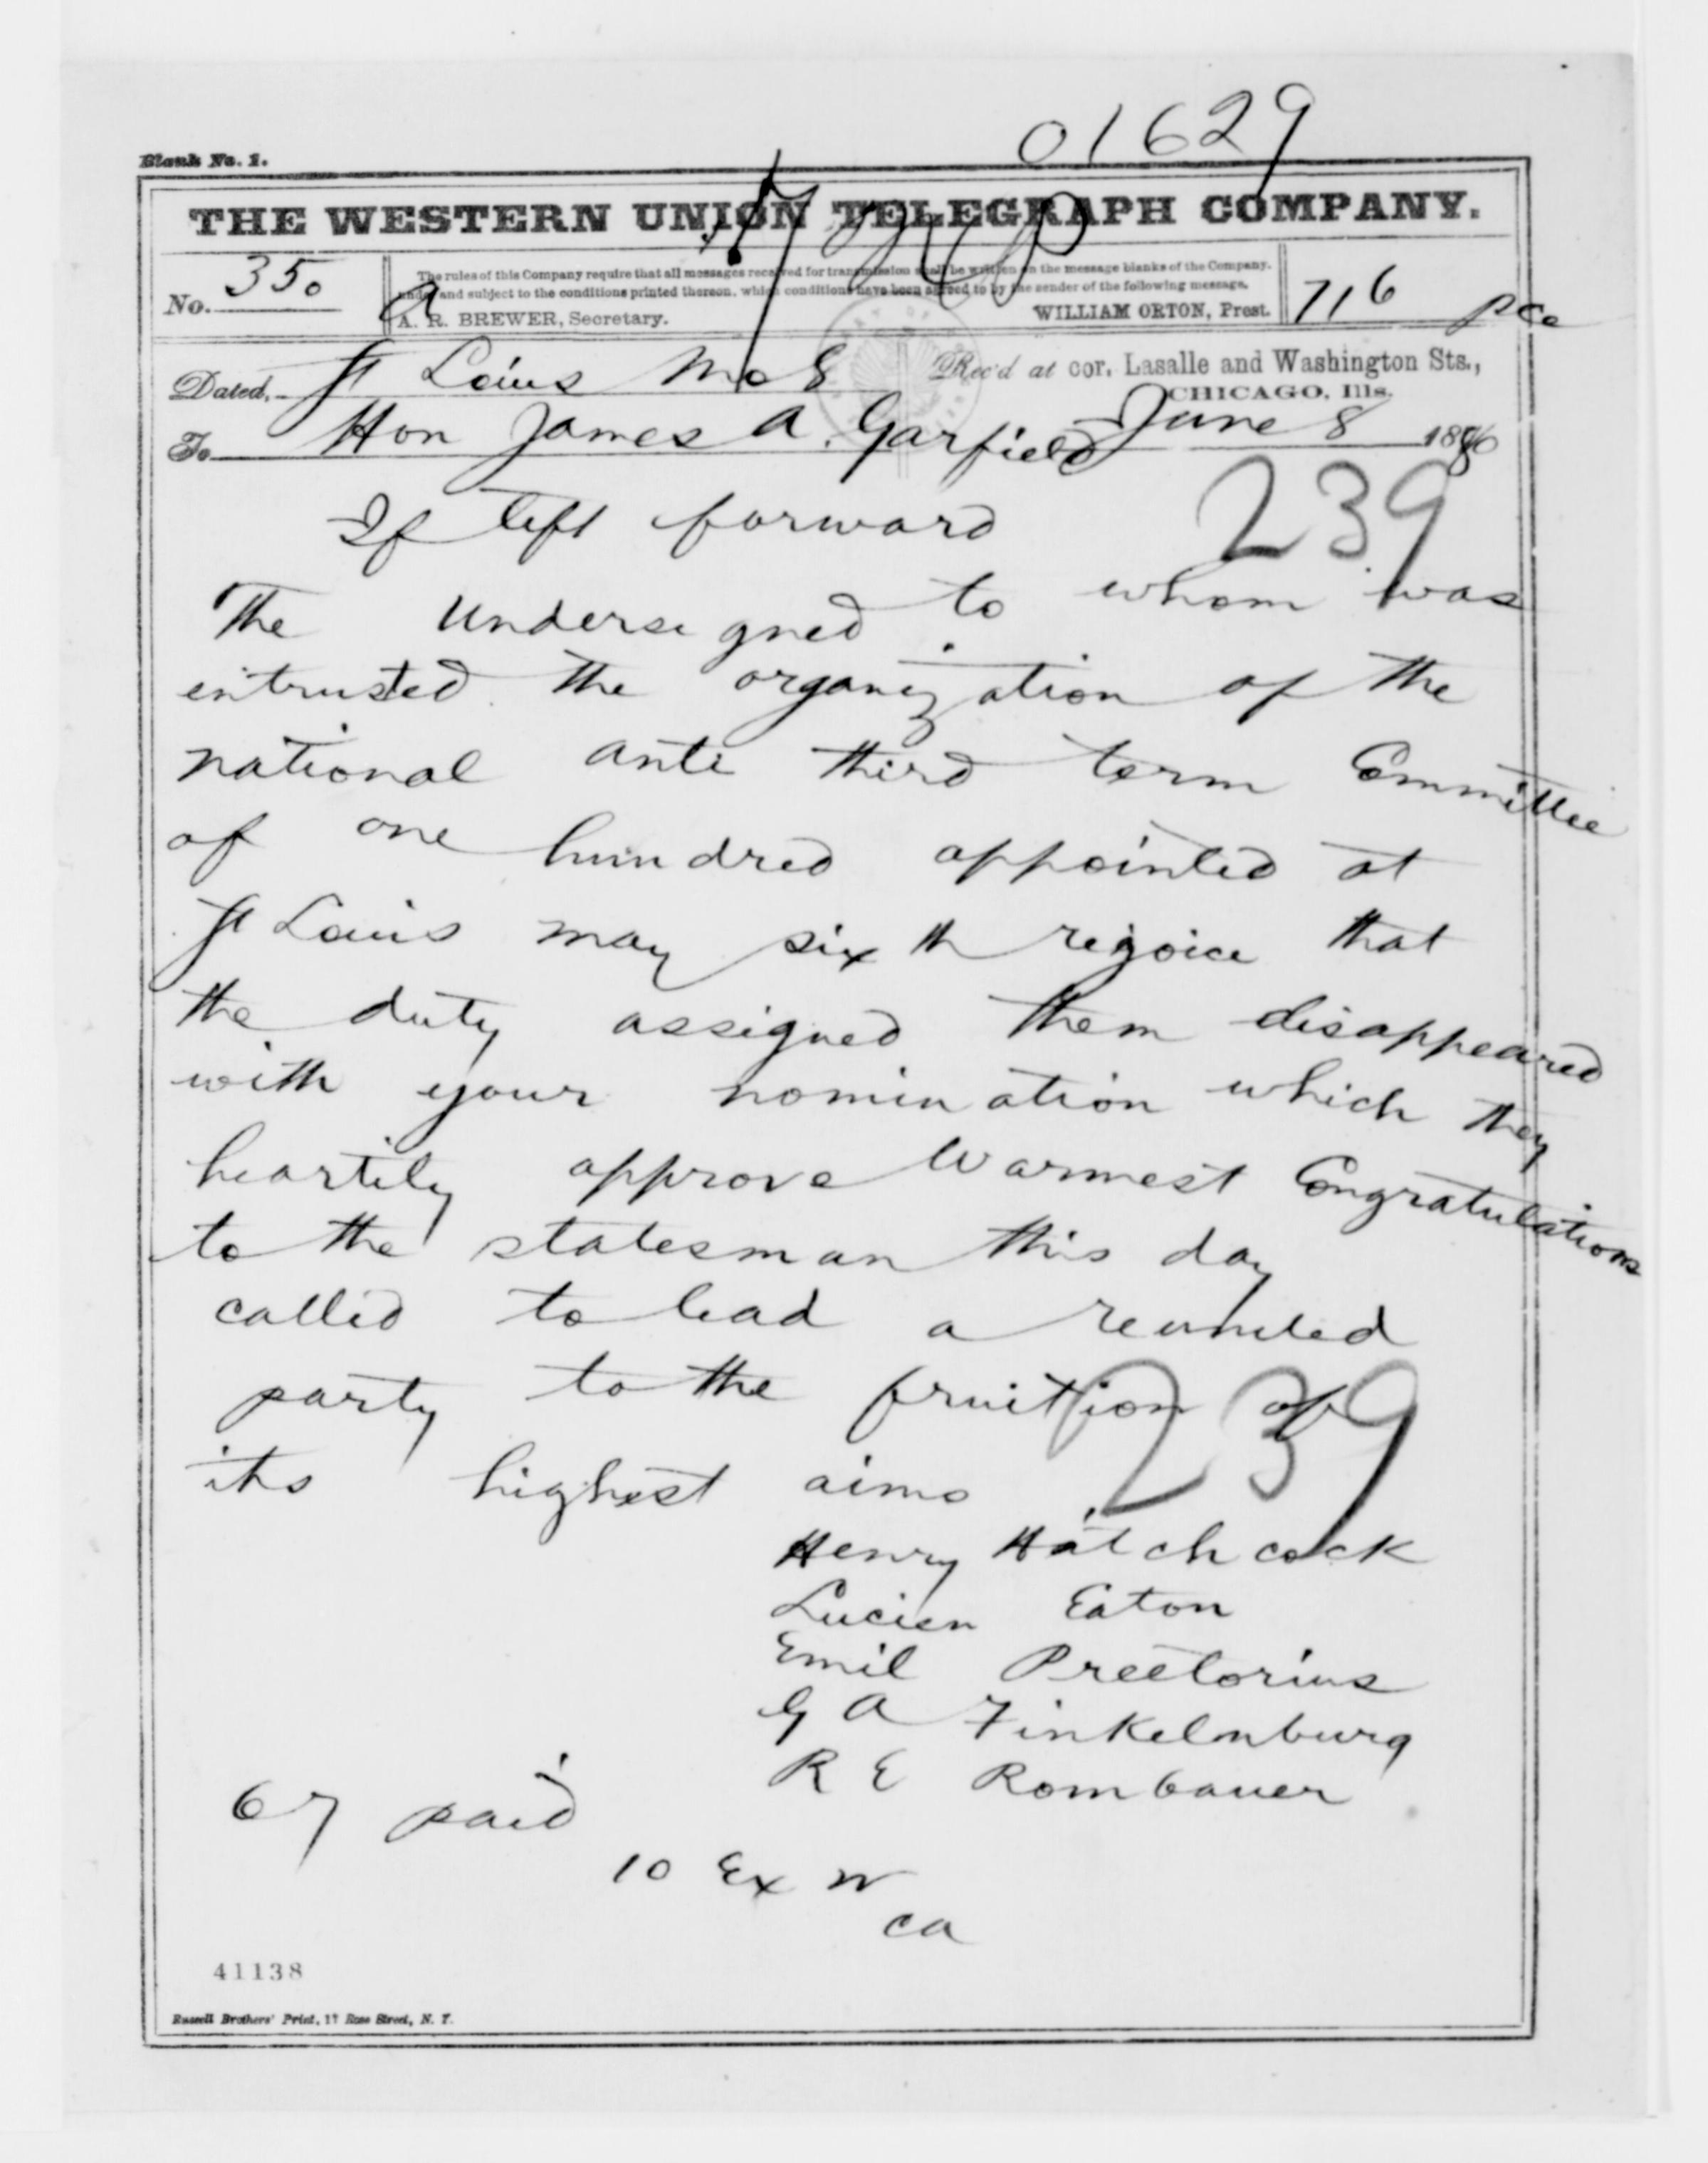 01629
Blank No. 1.
THE WESTERN UNION TELEGRAPH COMPANY.
No. 350
The rules of this Company require that all messages received for transmission shall be written on the message blanks of the Company,
under and subject to the conditions printed thereon, which conditions have been agreed to by the sender of the following message.
A. R. BREWER, Secretary. WILLIAM ORTON, Prest.
716
Dated, St Louis Mo 8 Rec'd at cor. Lasalle and Washington Sts.,
CHICAGO, Ills.
To Hon James A. Garfield June 8 1880
If left forward 239
The undersigned to whom was
entrusted the organization of the
national anti third term Committee
of one hundred appointed at
St Louis may sixth rejoice that
the duty assigned them disappeared
with your nomination which they
heartily approve Warmest Congratulations
to the statesman this day
called to lead a reunited
party to the fruition of
its highest aims 239
Henry Hatchcock
Lucien Eaton
Emil Preetorius
G A Finkelnburg
R E Rombauer
67 paid
10 Ex W
ca
41138
Russell Brothers' Print, 17 Rose Street, N. Y.